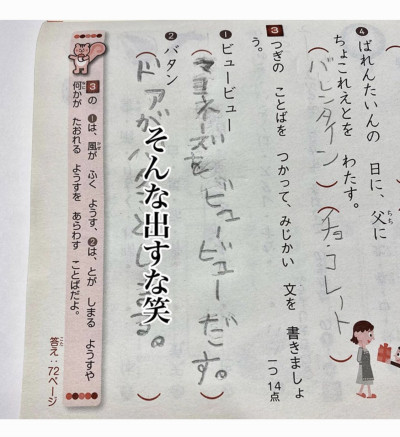 ❹ ばれんたいんの 日に、父に
ちち
ちょこれえとを わたす。
(バレンタイン)(チョコレート)
3 つぎの ことばを つかって、みじかい 文を 書きましょ
う。
一つ 14点
❶ ビュービュー
(マヨネーズを ビュービューだす。)
❷ バタン
(ドアが
としまる。)
そんな出すな笑
3の ❶は、風が ふく ようす、❷は、とが しまる ようすや
かぜ
何かが たおれる ようすを あらわす ことばだよ。
なに
答え:72ページ